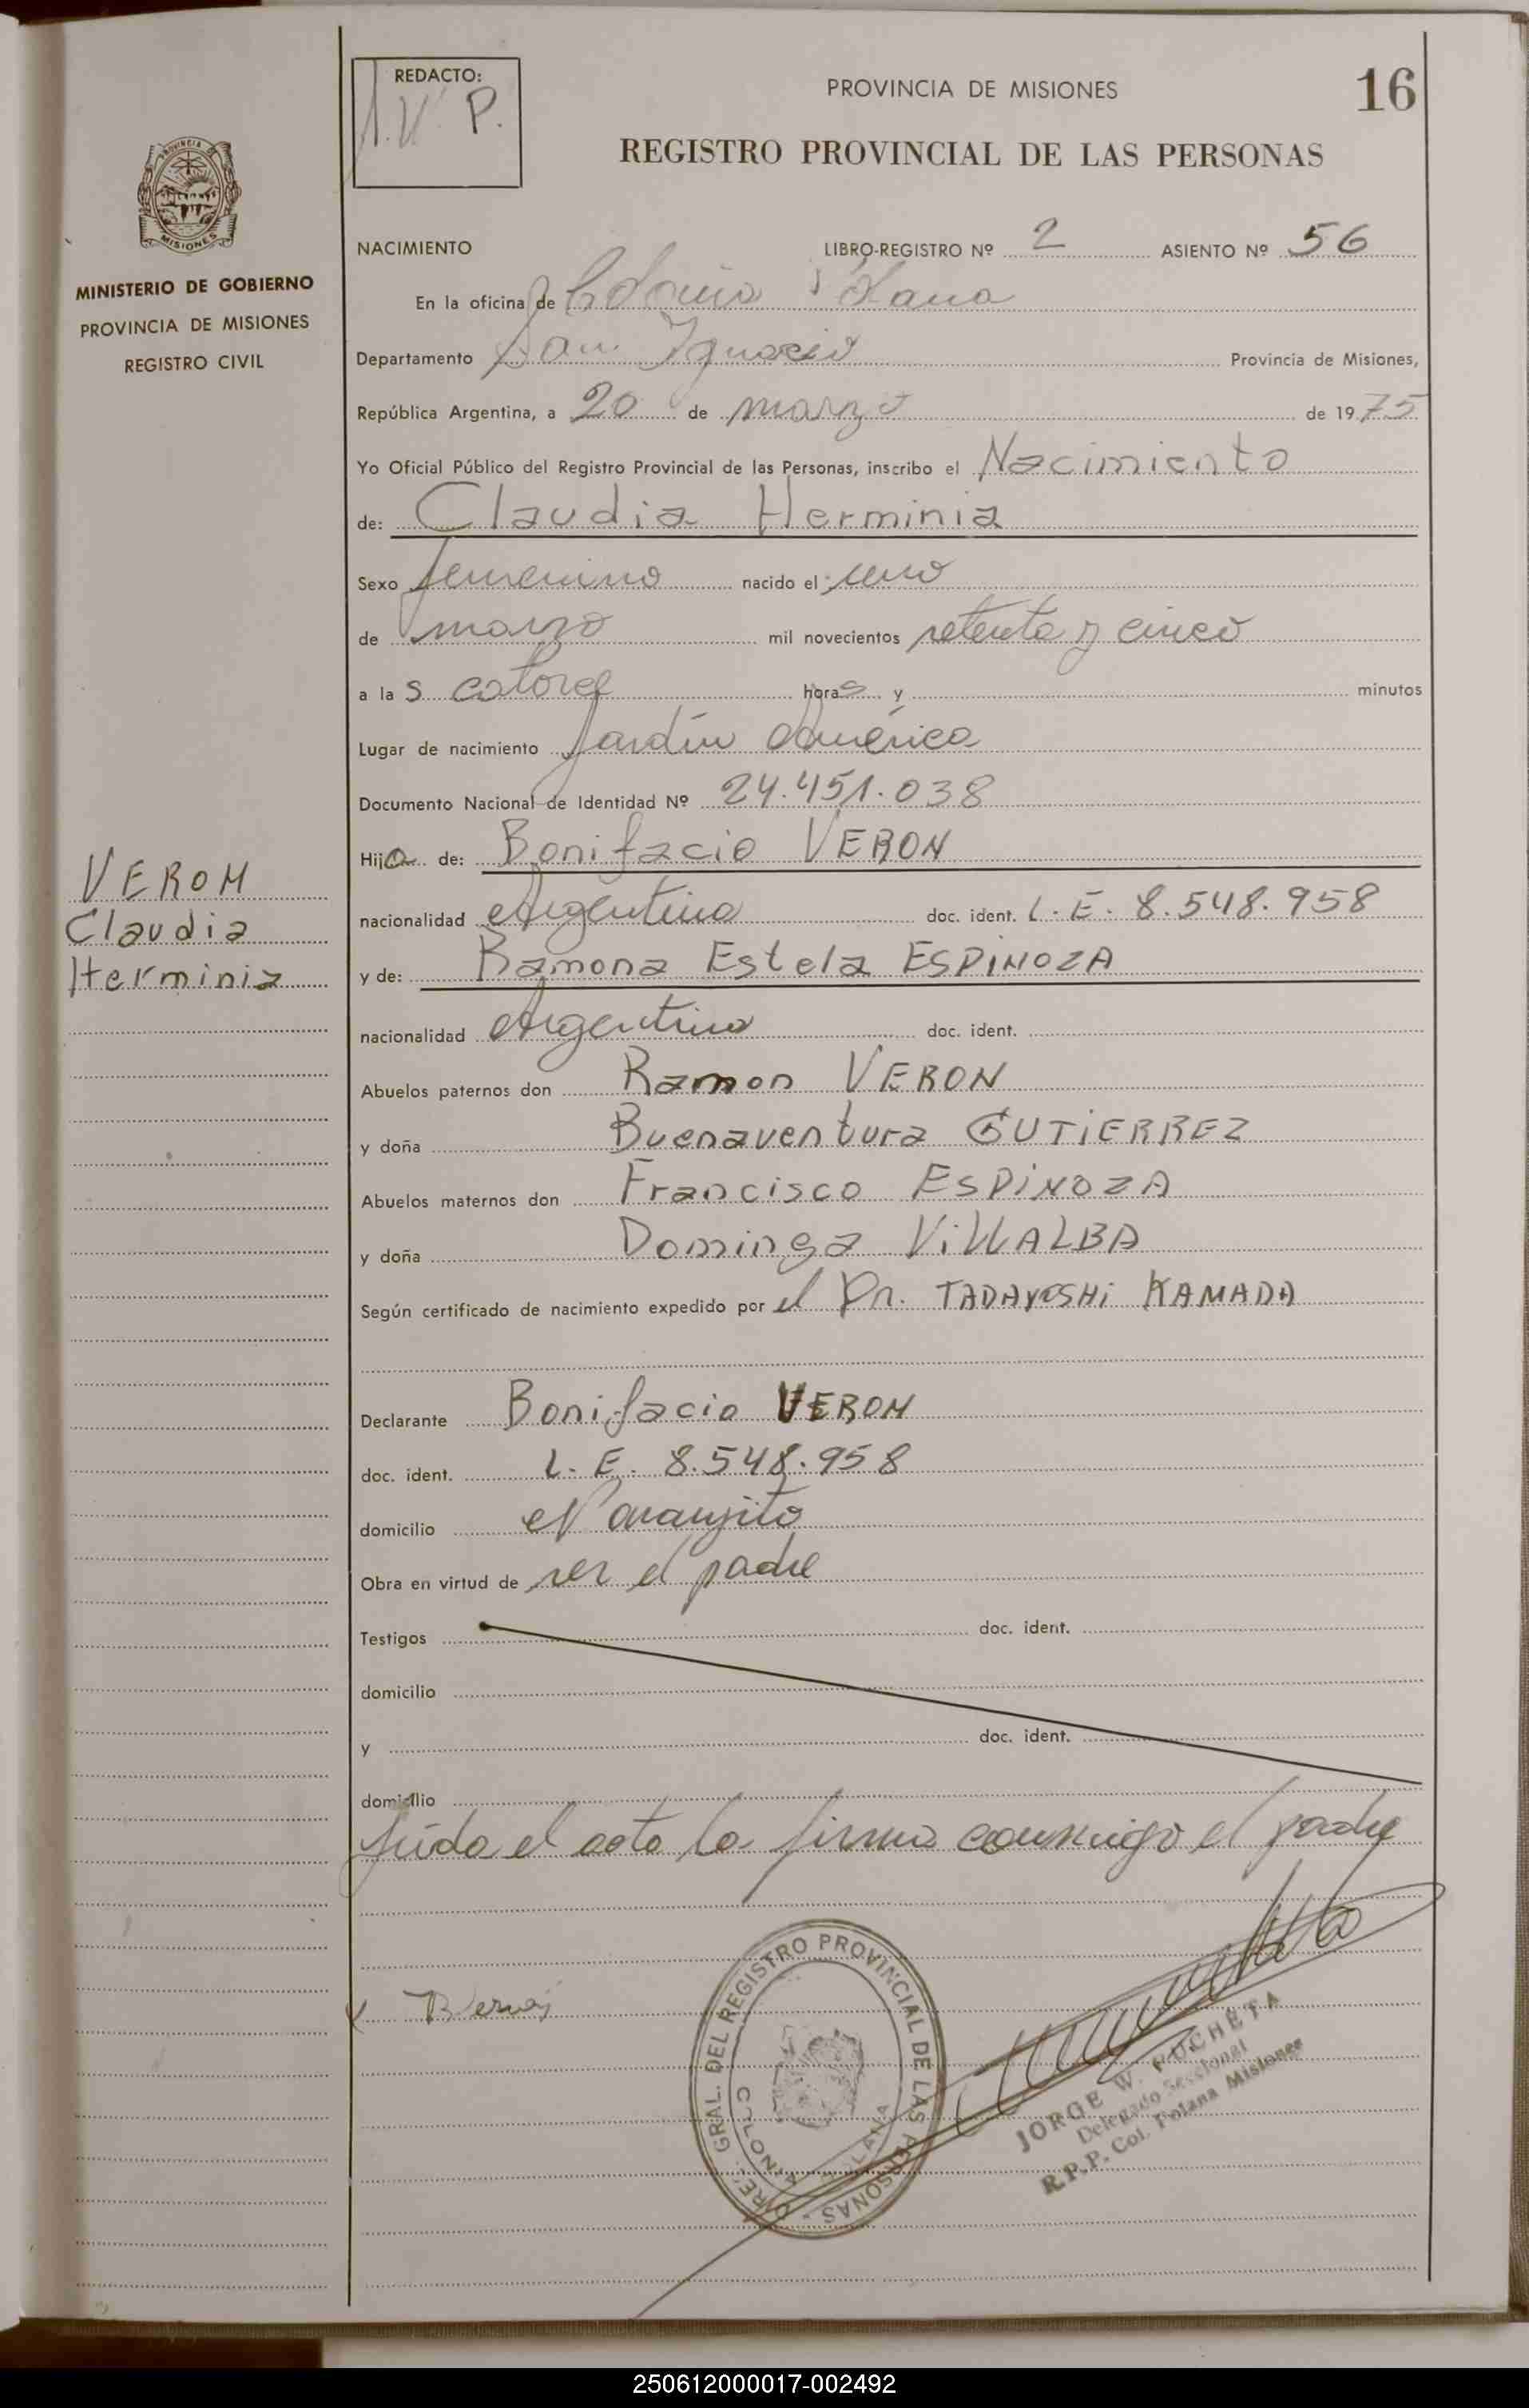 REDACTO:
J.V.P.
PROVINCIA DE MISIONES
16
REGISTRO PROVINCIAL DE LAS PERSONAS
PROVINCIA DE
MISIONES
MINISTERIO DE GOBIERNO
PROVINCIA DE MISIONES
REGISTRO CIVIL
NACIMIENTO LIBRO-REGISTRO Nº 2 ASIENTO Nº 56
En la oficina de Colonia Polana
Departamento San Ignacio Provincia de Misiones,
República Argentina, a 20 de marzo de 1975
Yo Oficial Público del Registro Provincial de las Personas, inscribo el Nacimiento
de: Claudia Herminia
Sexo femenino nacido el uno
de marzo mil novecientos setenta y cinco
a las catorce horas y minutos
Lugar de nacimiento Jardín América
Documento Nacional de Identidad Nº 24.451.038
Hija de: Bonifacio VERON
VERON
Claudia
Herminia
nacionalidad Argentina doc. ident. L.E. 8.548.958
y de: Ramona Estela ESPINOZA
nacionalidad Argentina doc. ident.
Abuelos paternos don Ramon VERON
y doña Buenaventura GUTIERREZ
Abuelos maternos don Francisco ESPINOZA
y doña Dominga VILLALBA
Según certificado de nacimiento expedido por el Dr. TADAYOSHI KAMADA
Declarante Bonifacio VERON
doc. ident. L.E. 8.548.958
domicilio el Naranjito
Obra en virtud de ser el padre
Testigos doc. ident.
domicilio
y doc. ident.
domicilio
leída el acta la firma conmigo el padre
DIREC. GRAL. DEL REGISTRO PROVINCIAL DE LAS PERSONAS
COLONIA POLANA
JORGE W. PUCHETA
Delegado Seccional
R.P.P. Col. Polana Misiones
250612000017-002492